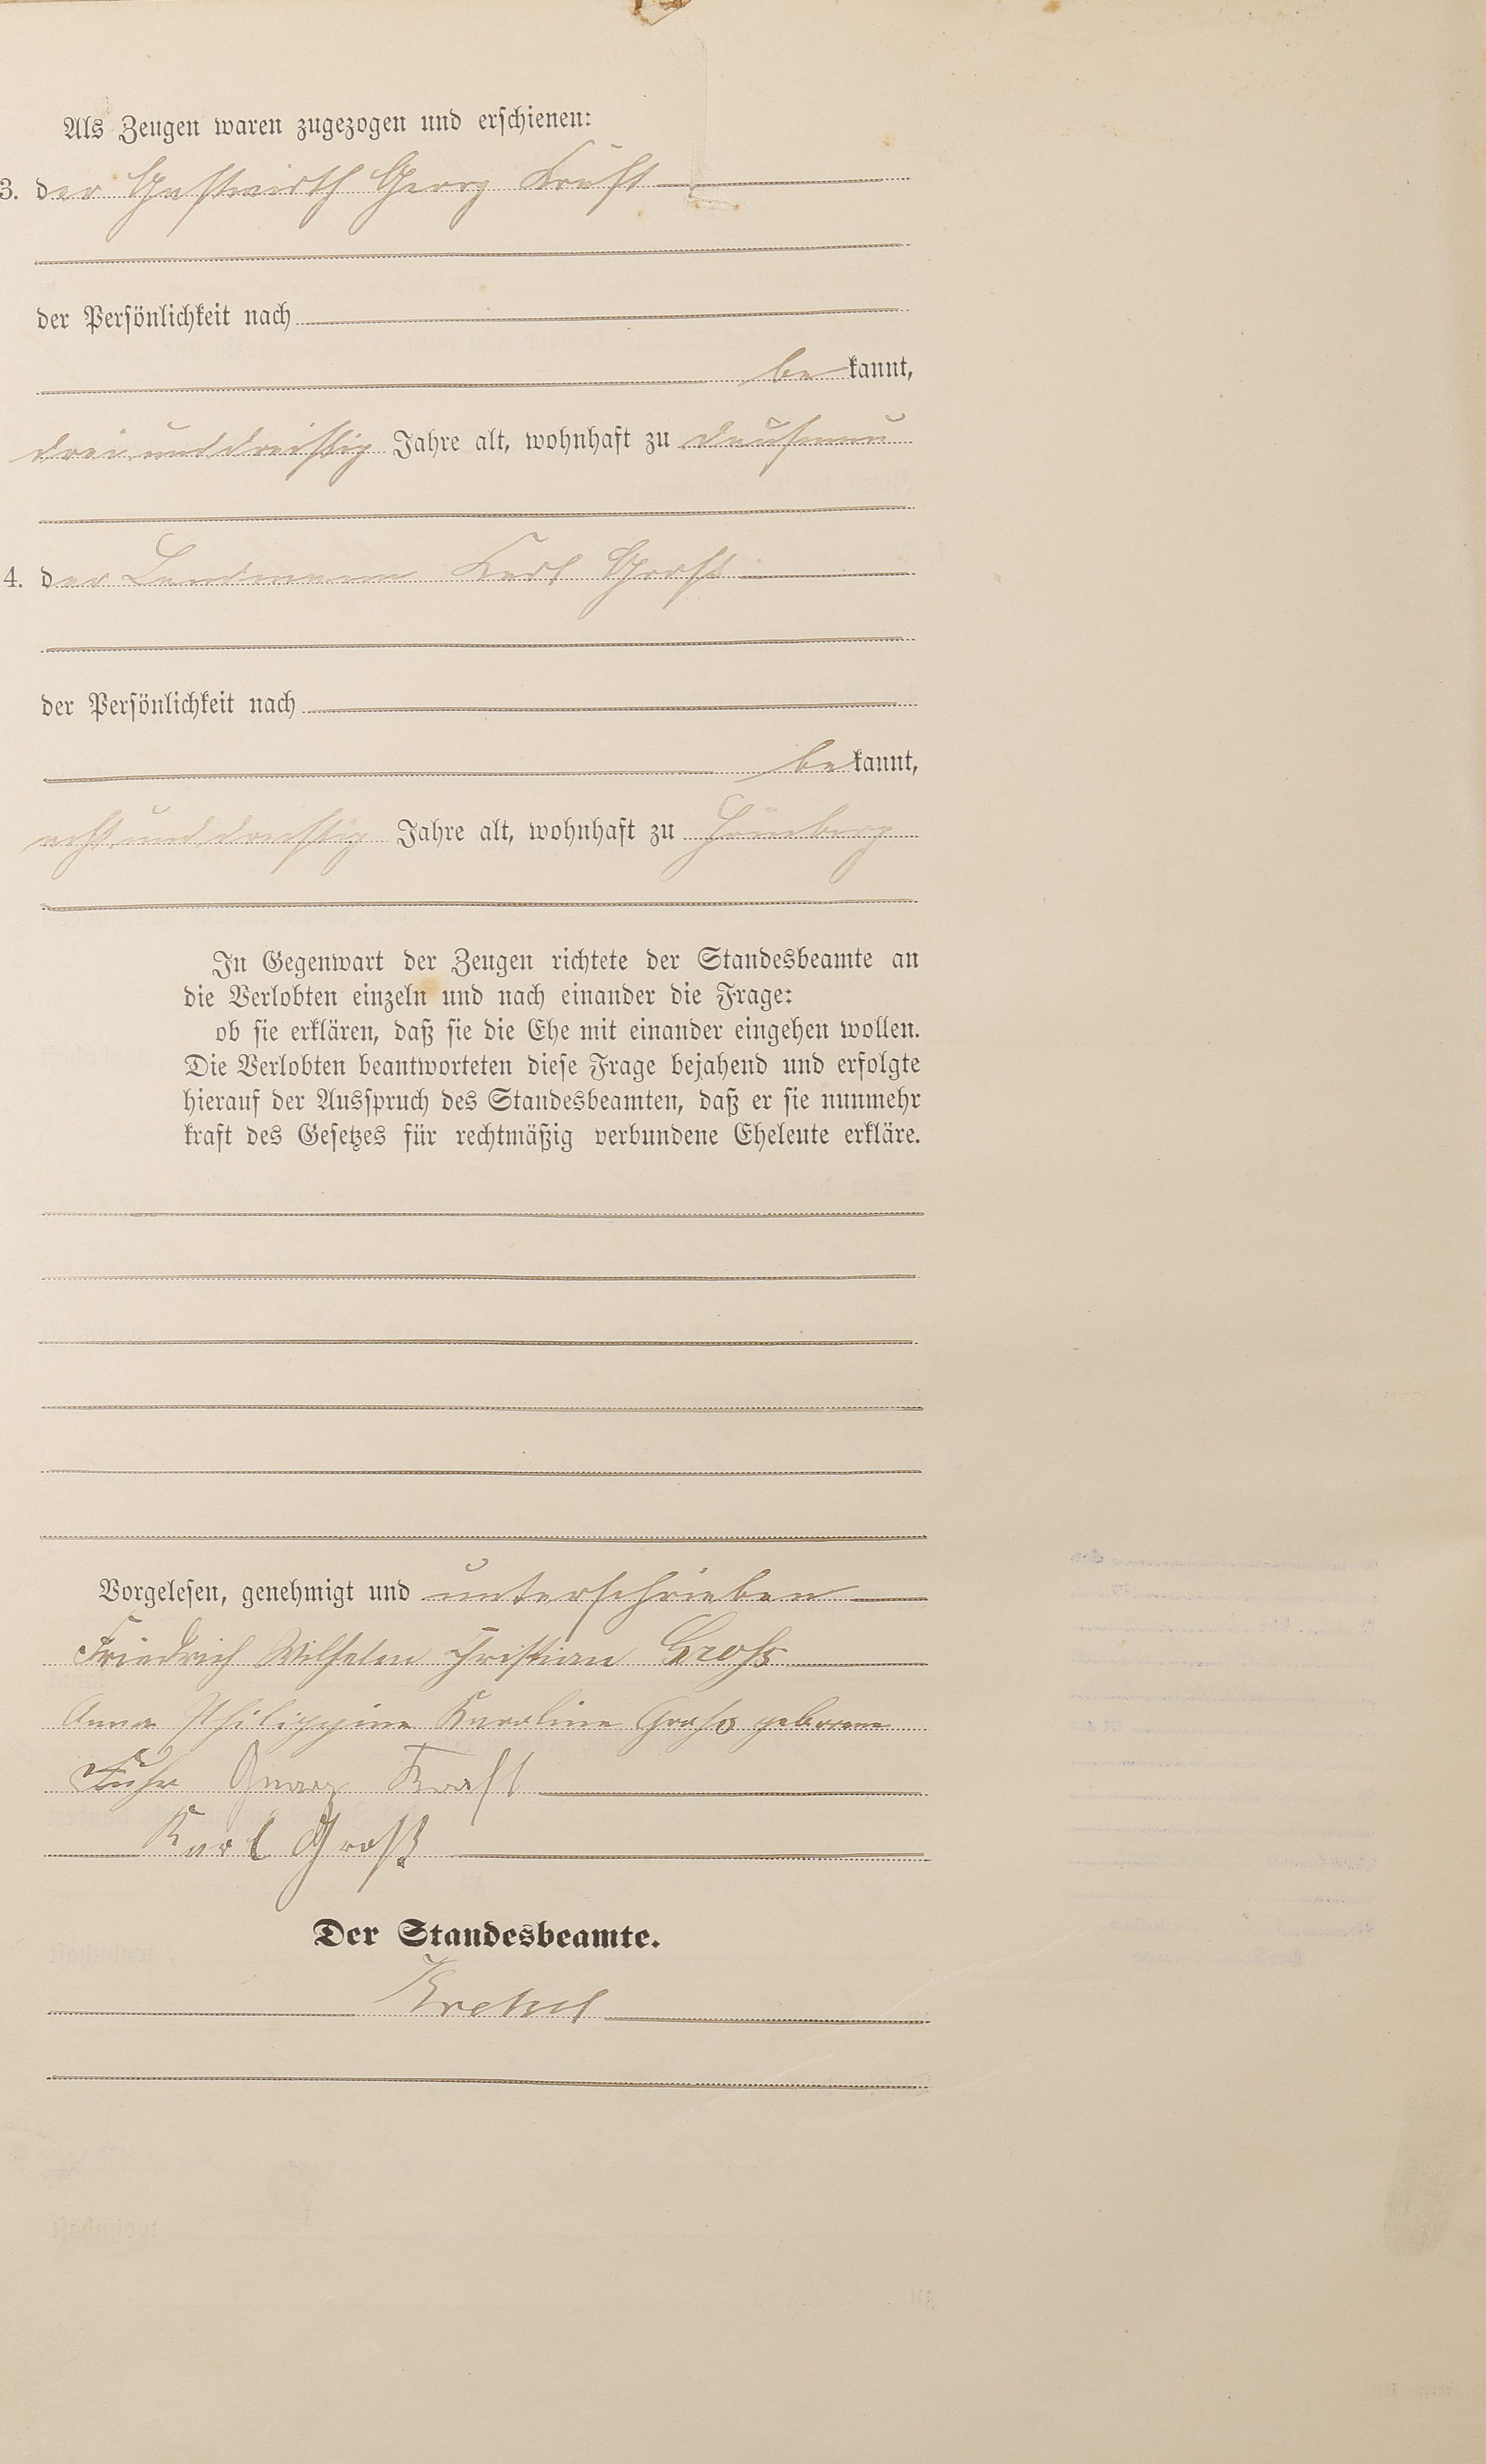 Als Zeugen waren zugezogen und erschienen:
3. der Gastwirth Georg Kraft
der Persönlichkeit nach
be kannt,
drei und dreißig Jahre alt, wohnhaft zu Dausenau
4. der Landmann Karl Groß
der Persönlichkeit nach
be kannt,
acht und dreißig Jahre alt, wohnhaft zu Hömberg
In Gegenwart der Zeugen richtete der Standesbeamte an
die Verlobten einzeln und nach einander die Frage:
ob sie erklären, daß sie die Ehe mit einander eingehen wollen.
Die Verlobten beantworteten diese Frage bejahend und erfolgte
hierauf der Ausspruch des Standesbeamten, daß er sie nunmehr
kraft des Gesetzes für rechtmäßig verbundene Eheleute erkläre.
Vorgelesen, genehmigt und unterschrieben
Friedrich Wilhelm Christian Groß
Anna Philippine Karoline Groß geborene
Fuhr Georg Kraft
Karl Groß
Der Standesbeamte.